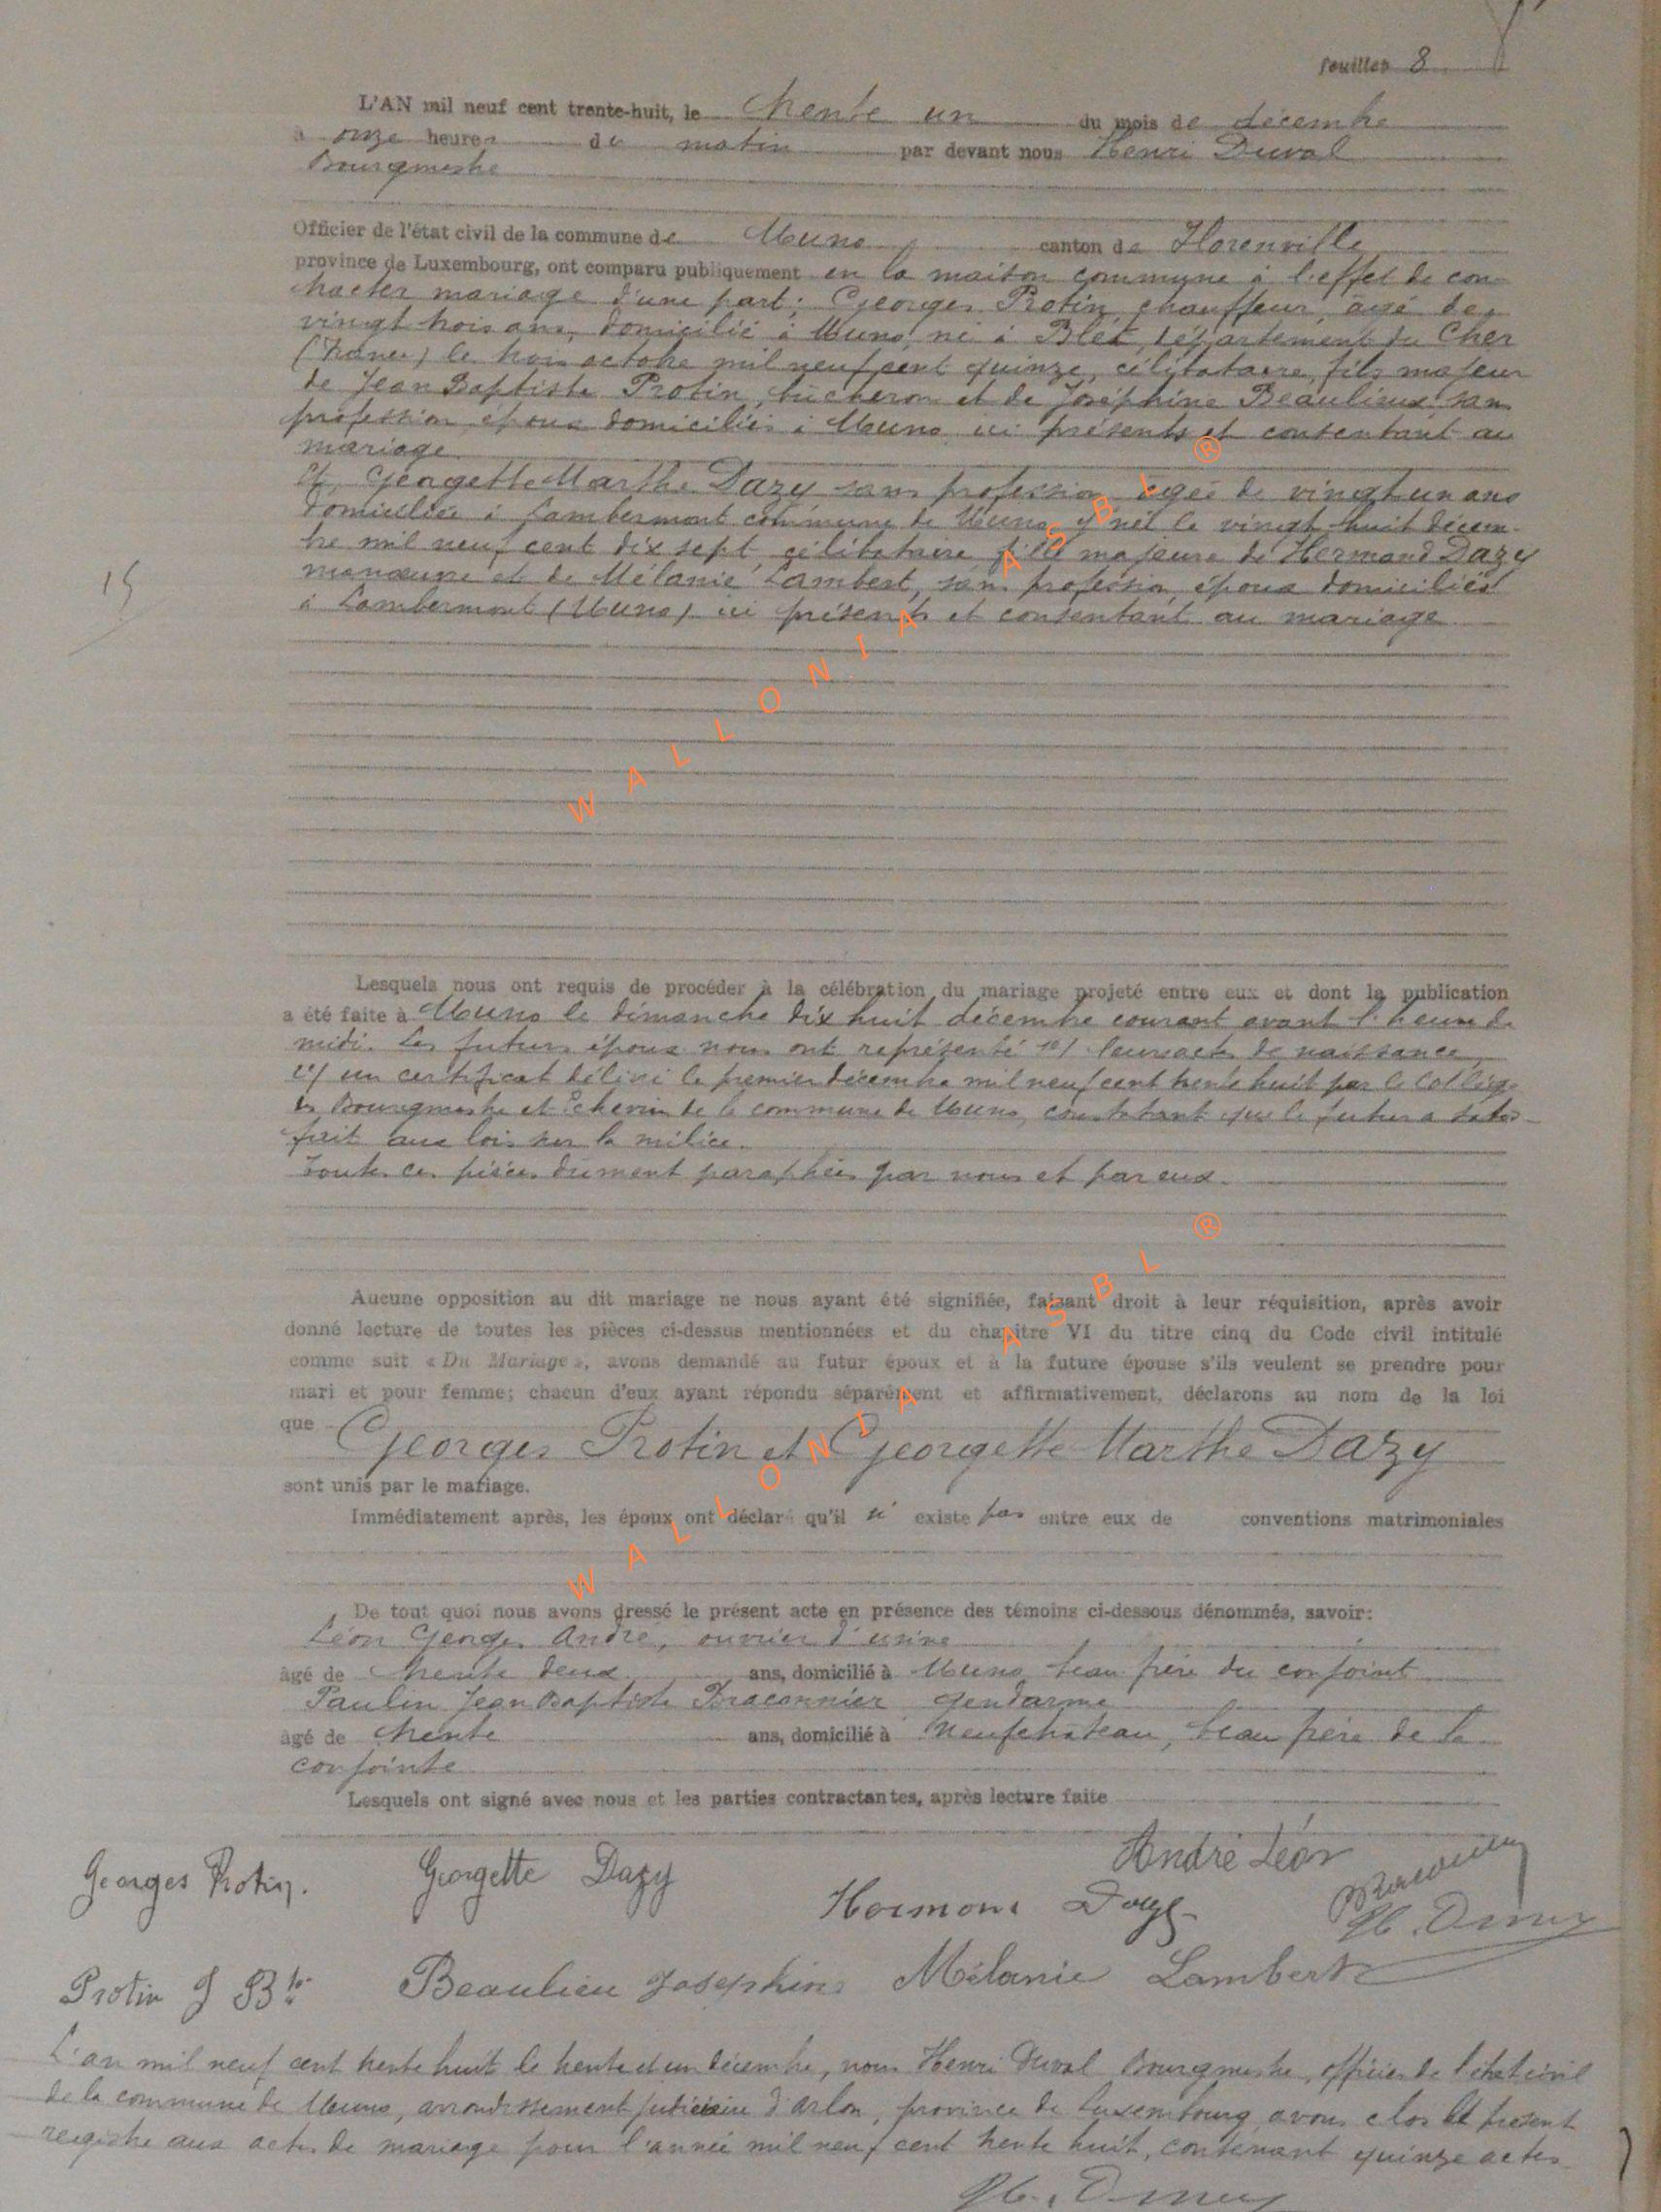 feuillet 8
L'AN mil neuf cent trente-huit, le trente un du mois de décembre
à onze heures du matin par devant nous Henri Duval
Bourgmestre
Officier de l'état civil de la commune de Muno, canton de Florenville
province de Luxembourg, ont comparu publiquement en la maison commune à l'effet de con-
tracter mariage d'une part: Georges Protin, chauffeur, âgé de
vingt trois ans, domicilié à Muno, né à Blet, département du Cher
(France) le trois octobre mil neuf cent quinze, célibataire, fils majeur
de Jean Baptiste Protin, bûcheron et de Joséphine Beaulieux, sans
profession, époux domiciliés à Muno, ici présents et consentant au
mariage.
Et, Georgette Marthe Dazy sans profession, âgée de vingt un ans
domiciliée à Lambermont commune de Muno, y née le vingt huit décem-
bre mil neuf cent dix sept, célibataire fille majeure de Hermand Dazy
manœuvre et de Mélanie Lambert, sans profession, époux domiciliés
à Lambermont (Muno) ici présents et consentant au mariage
15
WALLONIA ASBL ®
Lesquels nous ont requis de procéder à la célébration du mariage projeté entre eux et dont la publication
a été faite à Muno le dimanche dix huit décembre courant avant l'heure de
midi. Les futurs époux nous ont représenté 1°/ leurs actes de naissance,
2°/ un certificat délivré le premier décembre mil neuf cent trente huit par le Collège
des Bourgmestre et Echevins de la commune de Muno, constatant que le futur a satis-
fait aux lois sur la milice.
Toutes ces pièces dûment paraphées par nous et par eux.
Aucune opposition au dit mariage ne nous ayant été signifiée, faisant droit à leur réquisition, après avoir
donné lecture de toutes les pièces ci-dessus mentionnées et du chapitre VI du titre cinq du Code civil intitulé
comme suit « Du Mariage », avons demandé au futur époux et à la future épouse s'ils veulent se prendre pour
mari et pour femme; chacun d'eux ayant répondu séparément et affirmativement, déclarons au nom de la loi
que Georges Protin et Georgette Marthe Dazy
sont unis par le mariage.
Immédiatement après, les époux ont déclaré qu'il n' existe pas entre eux de conventions matrimoniales
WALLONIA ASBL ®
De tout quoi nous avons dressé le présent acte en présence des témoins ci-dessous dénommés, savoir:
Léon Georges André, ouvrier d'usine
âgé de trente deux ans, domicilié à Muno, beau frère du conjoint
Paulin Jean Baptiste Braconnier gendarme
âgé de trente ans, domicilié à Neufchâteau, beau frère de la
conjointe
Lesquels ont signé avec nous et les parties contractantes, après lecture faite
André Léon
Georges Protin. Georgette Dazy
Braconnier
Hermand Dazy
H. Duval
Protin J Bte Beaulieu Joséphine Mélanie Lambert
L'an mil neuf cent trente huit le trente et un décembre, nous Henri Duval Bourgmestre, officier de l'état civil
de la commune de Muno, arrondissement judiciaire d'Arlon, province de Luxembourg avons clos le présent
registre aux actes de mariage pour l'année mil neuf cent trente huit, contenant quinze actes
H. Duval